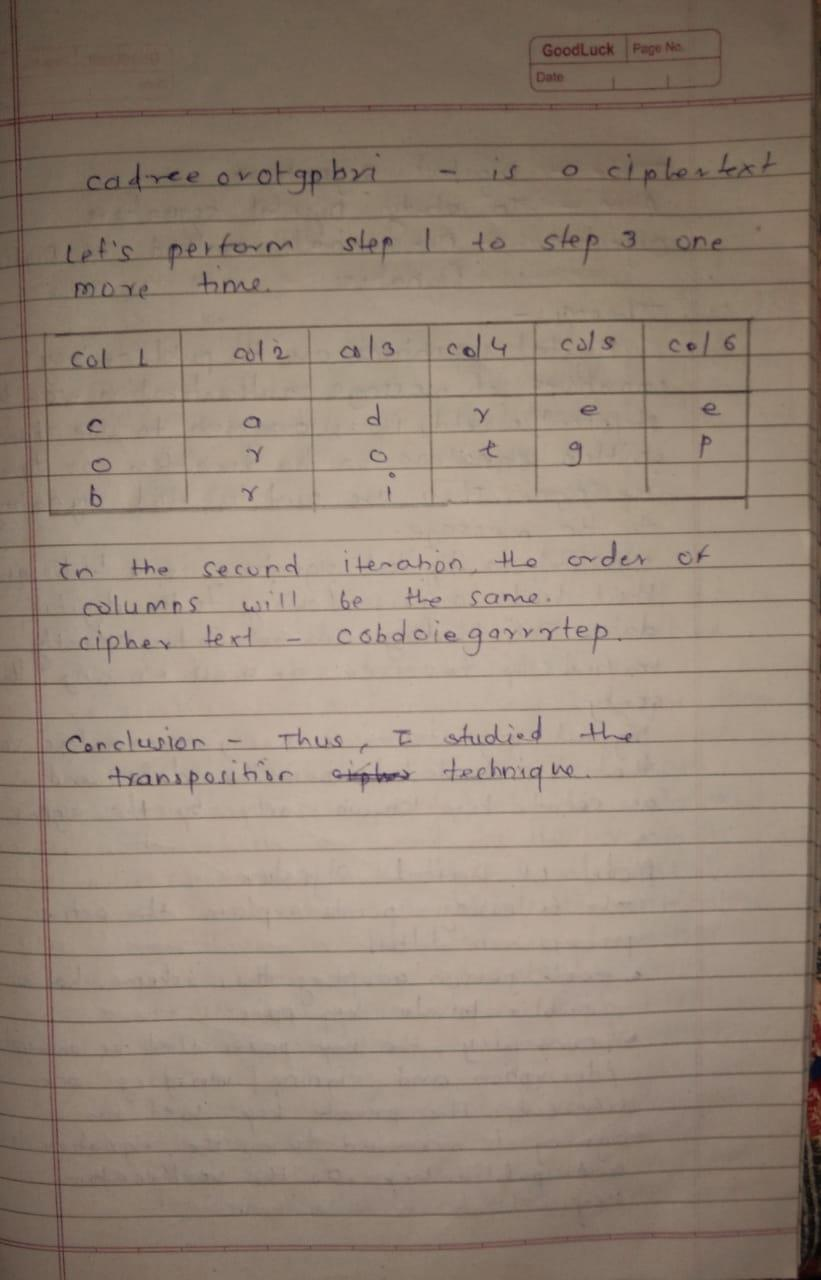 GoodLuck Page No.
Date
cadree orotgpbri - is a ciphertext
Let's perform step 1 to step 3 one
more time.
col 1 col 2 col 3 col 4 col 5 col 6
c a d r e e
o r o t g p
b r i
In the second iteration, the order of
columns will be the same.
cipher text - cobdoiegarrrtep.
Conclusion - Thus, I studied the
transposition cipher technique.